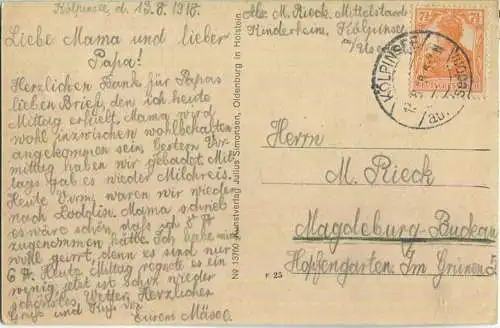 Kölpinsee d. 13.8.1918.
Liebe Mama und lieber
Papa!
Herzlichen Dank für Papas
lieben Brief, den ich heute
Mittag erhielt. Mama wird
wohl inzwischen wohlbehalten
angekommen sein. Gestern Vor-
mittag haben wir gebadet. Mit-
tags gab es wieder Milchreis.
Heute Vorm. waren wir wieder
nach Mama schrieb
es wäre schön, daß ich 8 ℔
zugenommen hätte. Ich habe mich
wohl geirrt, denn es sind nur
6 ℔. Heute Mittag regnete es ein
wenig, jetzt ist schon wieder
schönstes Wetter. Herzlichen
Gruß und Kuß von
Eurem
Abs. M. Rieck, Mittelstands-
Kinderheim, Kölpinsee
KÖLPINSEE
(USEDOM)
7½
Herrn
M. Rieck
Magdeburg-Buckau
Hopfengarten Im Grünen
Nº 13700 Kunstverlag Julius Simonsen, Oldenburg in Holstein
F 25